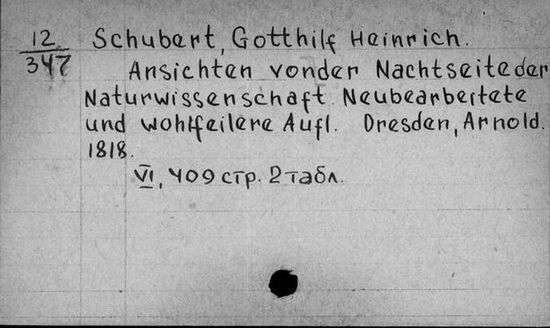 12
347
Schubert, Gotthilf Heinrich.
Ansichten vonder Nachtseite der
Naturwissenschaft. Neubearbeitete
und wohlfeilere Aufl. Dresden, Arnold.
1818.
VI, 409 стр. 2 табл.